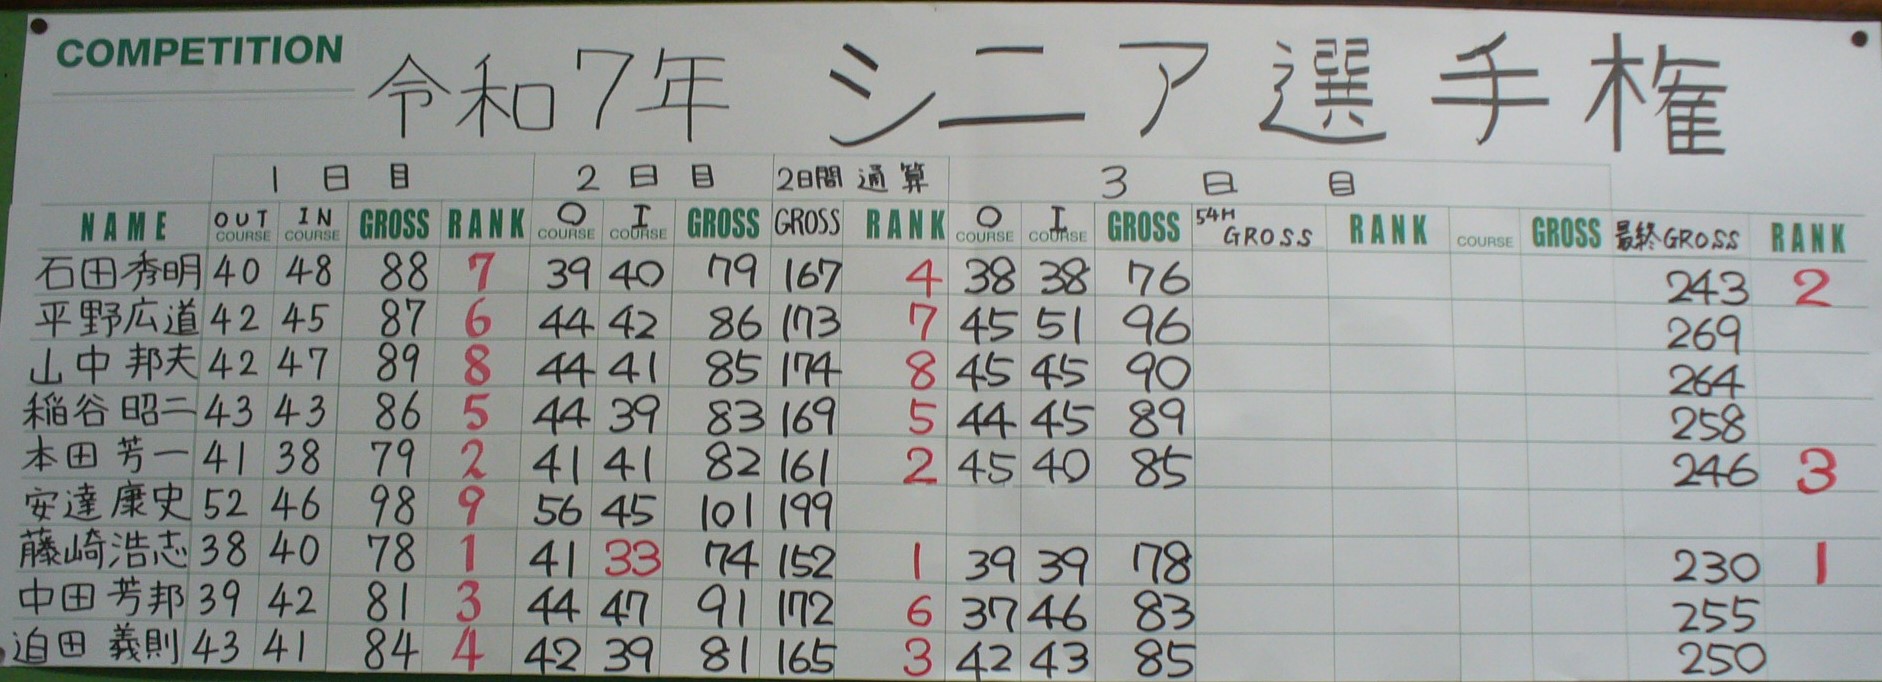 COMPETITION
令和7年 シニア選手権
1日目 2日目 2日間通算 3日目
NAME OUT COURSE IN COURSE GROSS RANK O COURSE I COURSE GROSS GROSS RANK O COURSE I COURSE GROSS 54H GROSS RANK COURSE GROSS 最終GROSS RANK
石田秀明 40 48 88 7 39 40 79 167 4 38 38 76 243 2
平野広道 42 45 87 6 44 42 86 173 7 45 51 96 269
山中邦夫 42 47 89 8 44 41 85 174 8 45 45 90 264
稲谷昭二 43 43 86 5 44 39 83 169 5 44 45 89 258
本田芳一 41 38 79 2 41 41 82 161 2 45 40 85 246 3
安達康史 52 46 98 9 56 45 101 199
藤崎浩志 38 40 78 1 41 33 74 152 1 39 39 78 230 1
中田芳邦 39 42 81 3 44 47 91 172 6 37 46 83 255
迫田義則 43 41 84 4 42 39 81 165 3 42 43 85 250